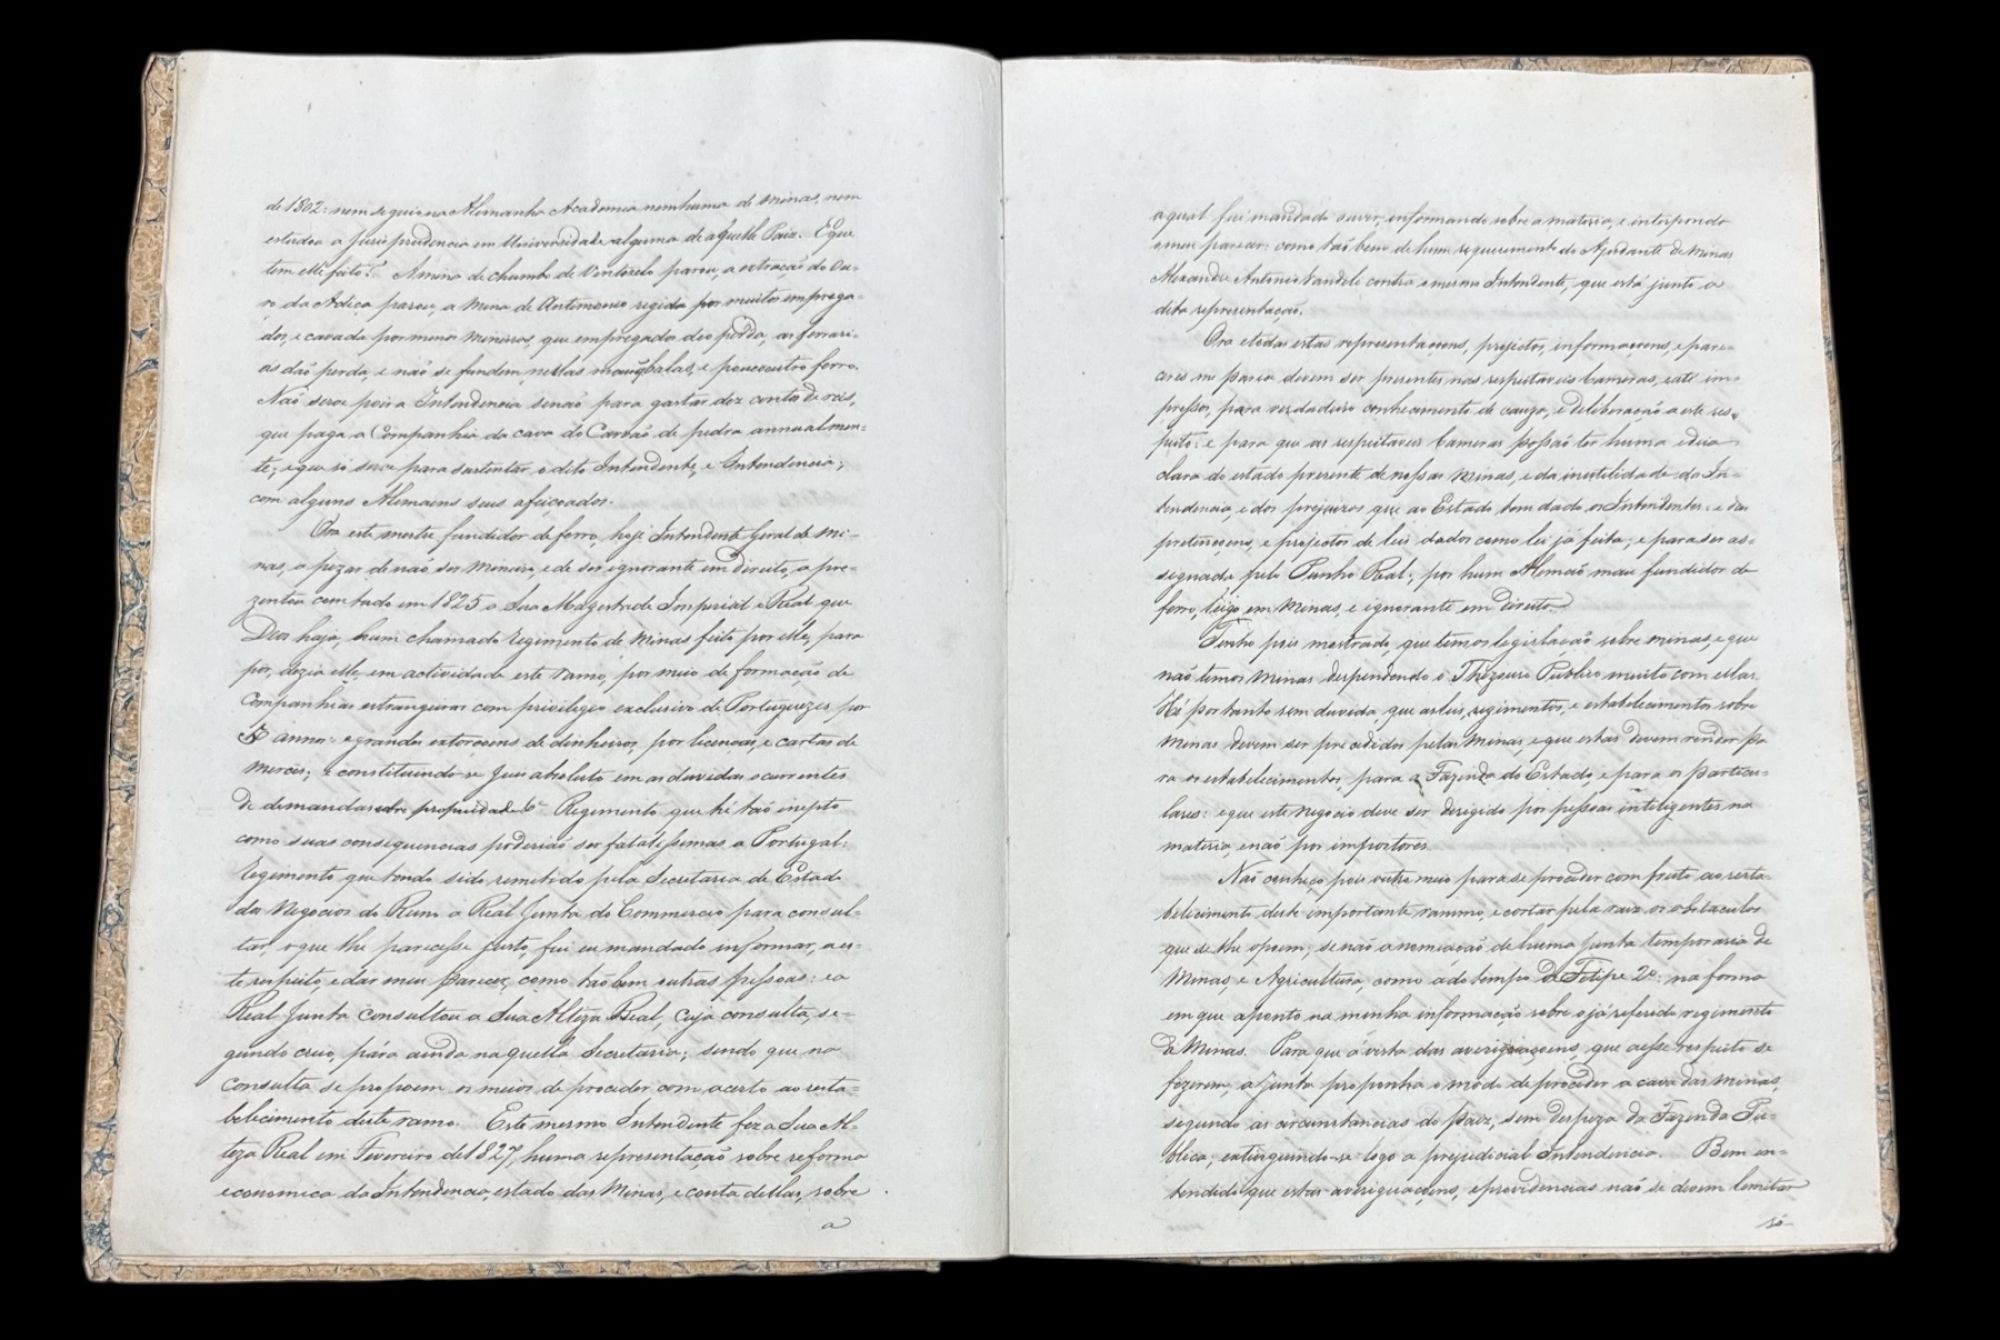 de 1802: nem seguio na Alemanha Academia nenhuma de Minas, nem
estudou a Jurisprudencia em Universidade alguma de aquelle Paiz. Eque
tem elle feito? A mina de chumbo de Ventozelo parou, a extração do Ou-
ro da Adiça parou, a Mina de Antimonio regida por muitos emprega-
dos, e cavada por menos Mineiros, que empregados deo perda, as ferrari-
as dão perda, e não se fundem nellas mais q balas, e pouco outro ferro.
Não serve pois a Intendencia senão para gastar dez contos de reis,
que paga a Companhia da cava do Carvão de pedra annualmen-
te; e que só serve para sustentar o dito Intendente, e Intendencia,
com alguns Alemaens seus afeiçoados.
Ora este mestre fundidor de ferro, hoje Intendente Geral de Mi-
nas, a pezar de não ser Mineiro, e de ser ignorante em direito, a pre-
zentou com tudo em 1825 a Sua Magestade Imperial e Real que
Deos haja, hum chamado Regimento de Minas feito por elle, para
por, dezia elle, em actividade este ramo, por meio de formação de
Companhias estrangeiras com privilegio exclusivo de Portuguezes por
anno: e grandes extorçoens de dinheiros, por licenças, e cartas de
Mercês; e constituindo-se Juis absoluto em as duvidas ocurrentes
de demandas sobre propriedade &ª Regimento que hé taó inepto
como suas consequencias poderiaó ser fatalissimas a Portugal:
Regimento que tendo sido remetido pela Secretaria de Estado
dos Negocios do Reino a Real Junta do Commercio para consul-
tar, o que lhe parecesse justo, fui eu mandado informar, a es-
te respeito, e dar meu parecer, como taó bem outras pessoas: e a
Real Junta consultou a Sua Alteza Real, cuja consulta, se-
gundo creio, pára ainda na quella Secretaria; sendo que na
consulta se propoem os meios de proceder com acerto ao resta-
belecimento deste ramo. Este mesmo Intendente fez a Sua Al-
teza Real em Fevereiro de 1827, huma representação sobre reforma
economica da Intendencia, estado das Minas, e conta dellas, sobre
a
a qual fui mandado ouvir, informando sobre a materia, e interpondo
o meu parecer: como taó bem de hum requerimento do Ajudante de Minas
Alexandre Antonio Vandeli contra o mesmo Intendente, que está junto a
dita representação.
Ora todas estas representaçoens, projectos, informaçoens, e pare-
ceres me parece devem ser presentes nas respeitaveis Cameras, e até im-
pressos, para verdadeiro conhecimento de cauza, e deliberação a este res-
peito: e para que as respeitaveis Cameras possaó ter huma edeia
clara do estado presente de nossas Minas, e da inutilidade da In-
tendencia, e dos prejuizos que ao Estado tem dado os Intendentes: e das
pretençoens, e projectos de leis dados como lei já feita, e para ser as-
signada pelo Punho Real; por hum Alemaó mau fundidor de
ferro, leigo em Minas, e ignorante em Direito.
Tenho pois mostrado, que temos legislação sobre minas, e que
não temos Minas despendendo o Thezouro Publico muito com ellas.
Hé por tanto sem duvida, que as leis, regimentos, e estabelecimentos sobre
Minas devem ser precedidos pelas Minas, e que estas devem render pa
ra os estabelecimentos, para a Fazenda do Estado, e para os particu-
lares: e que este negocio deve ser dirigido por pessoas inteligentes na
materia, e não por impostores.
Não conheço pois outro meio para se proceder com fruto ao resta-
belecimento deste importante rammo, e cortar pela raiz os obstaculos
que se lhe opoem; se não a nomeação de huma Junta temporaria de
Minas, e Agricultura, como a do tempo de Filipe 2º: na forma
em que aponto na minha informação sobre o já referido regimento
de Minas. Para que á vista das averiguaçoens, que a esse respeito se
fizerem, a Junta proponha o modo de proceder a cava das Minas,
segundo as circunstancias do paiz, sem despeza da Fazenda Pu-
blica; extinguindo-se logo a prejudicial Intendencia. Bem en-
tendido que estas averiguaçoens, e providencias naó se devem limitar
só